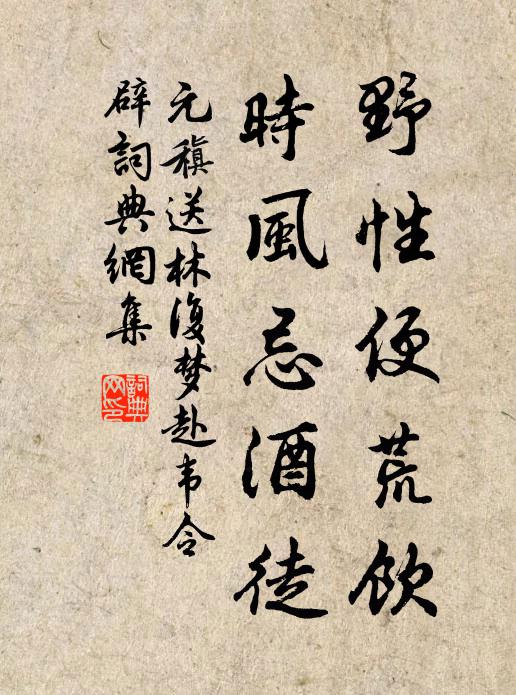 野性便荒飲
時風忌酒徒
元稹送林復梦赴韦令
辟詞典網集
詞典
网印